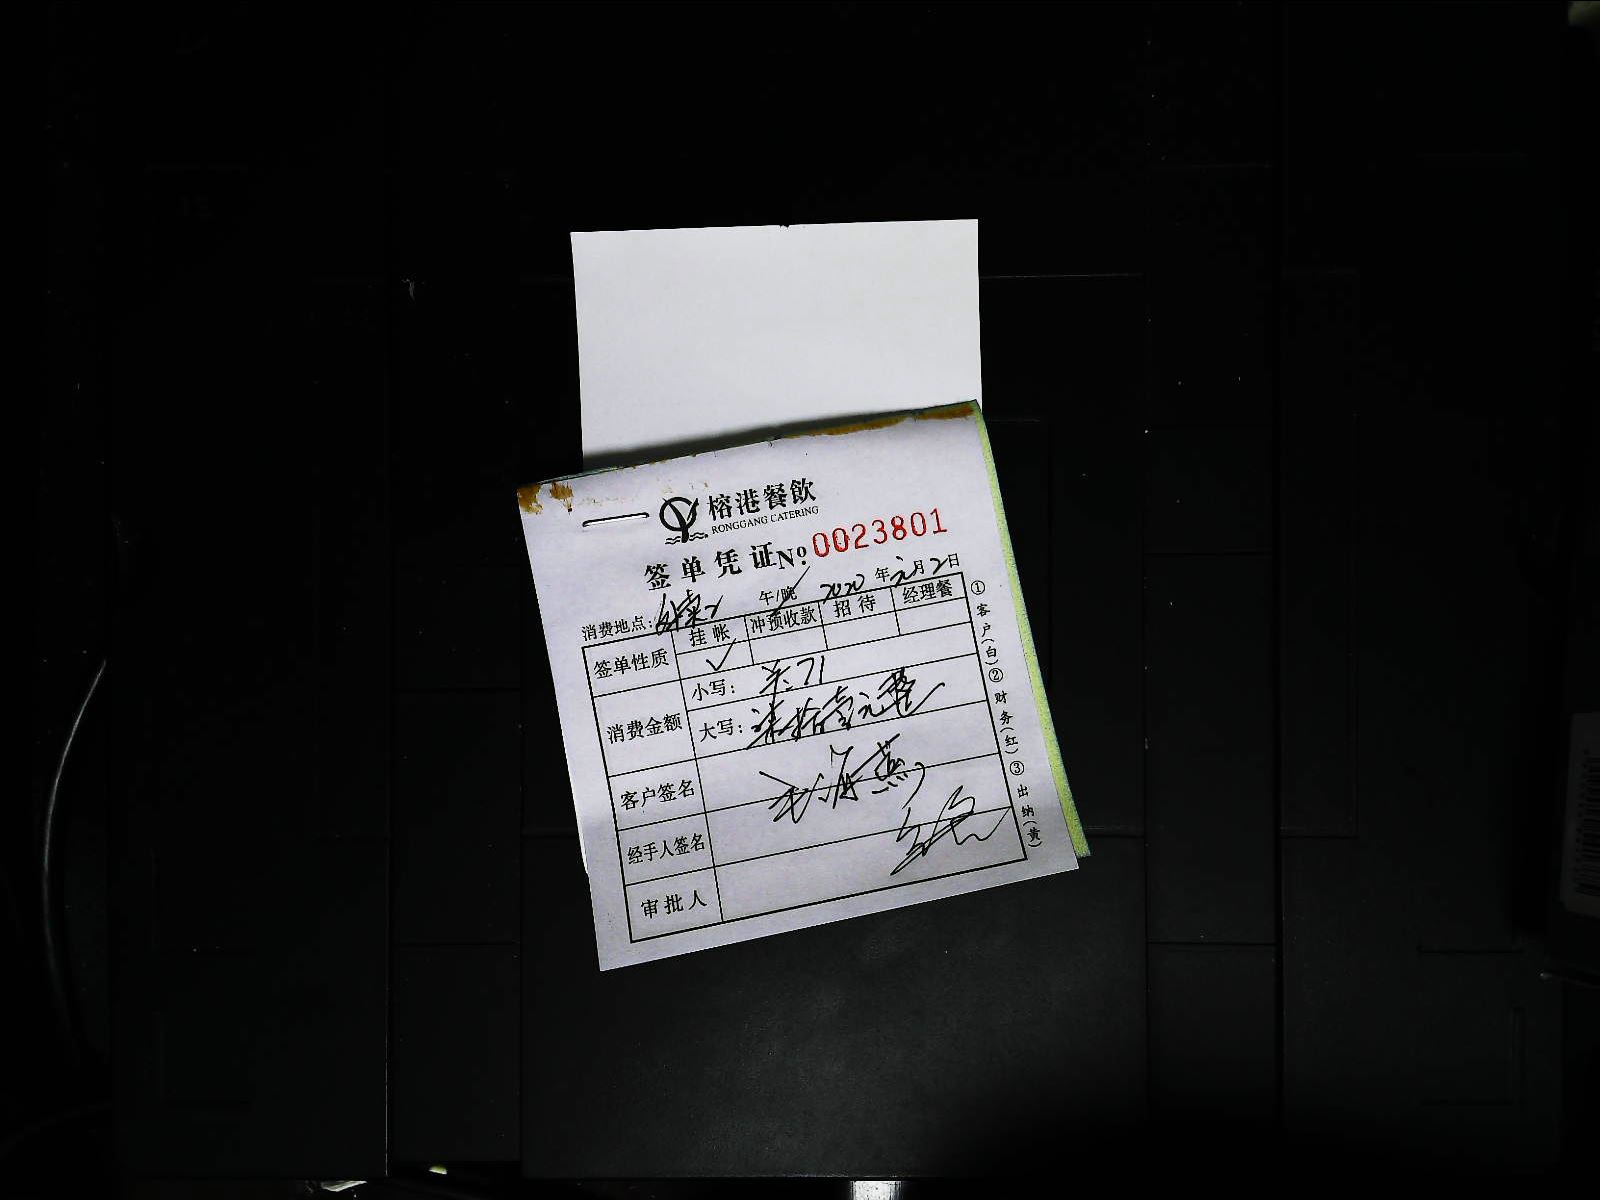 榕港餐飲
RONGGANG CATERING
签单凭证 Nº 0023801
消费地点： 午/晚 2020年元月2日
签单性质 挂帐 冲预收款 招待 经理餐
✓
消费金额 小写：¥:71
大写：柒拾壹元整
客户签名
经手人签名
审批人
①客户(白)②财务(红)③出纳(黄)